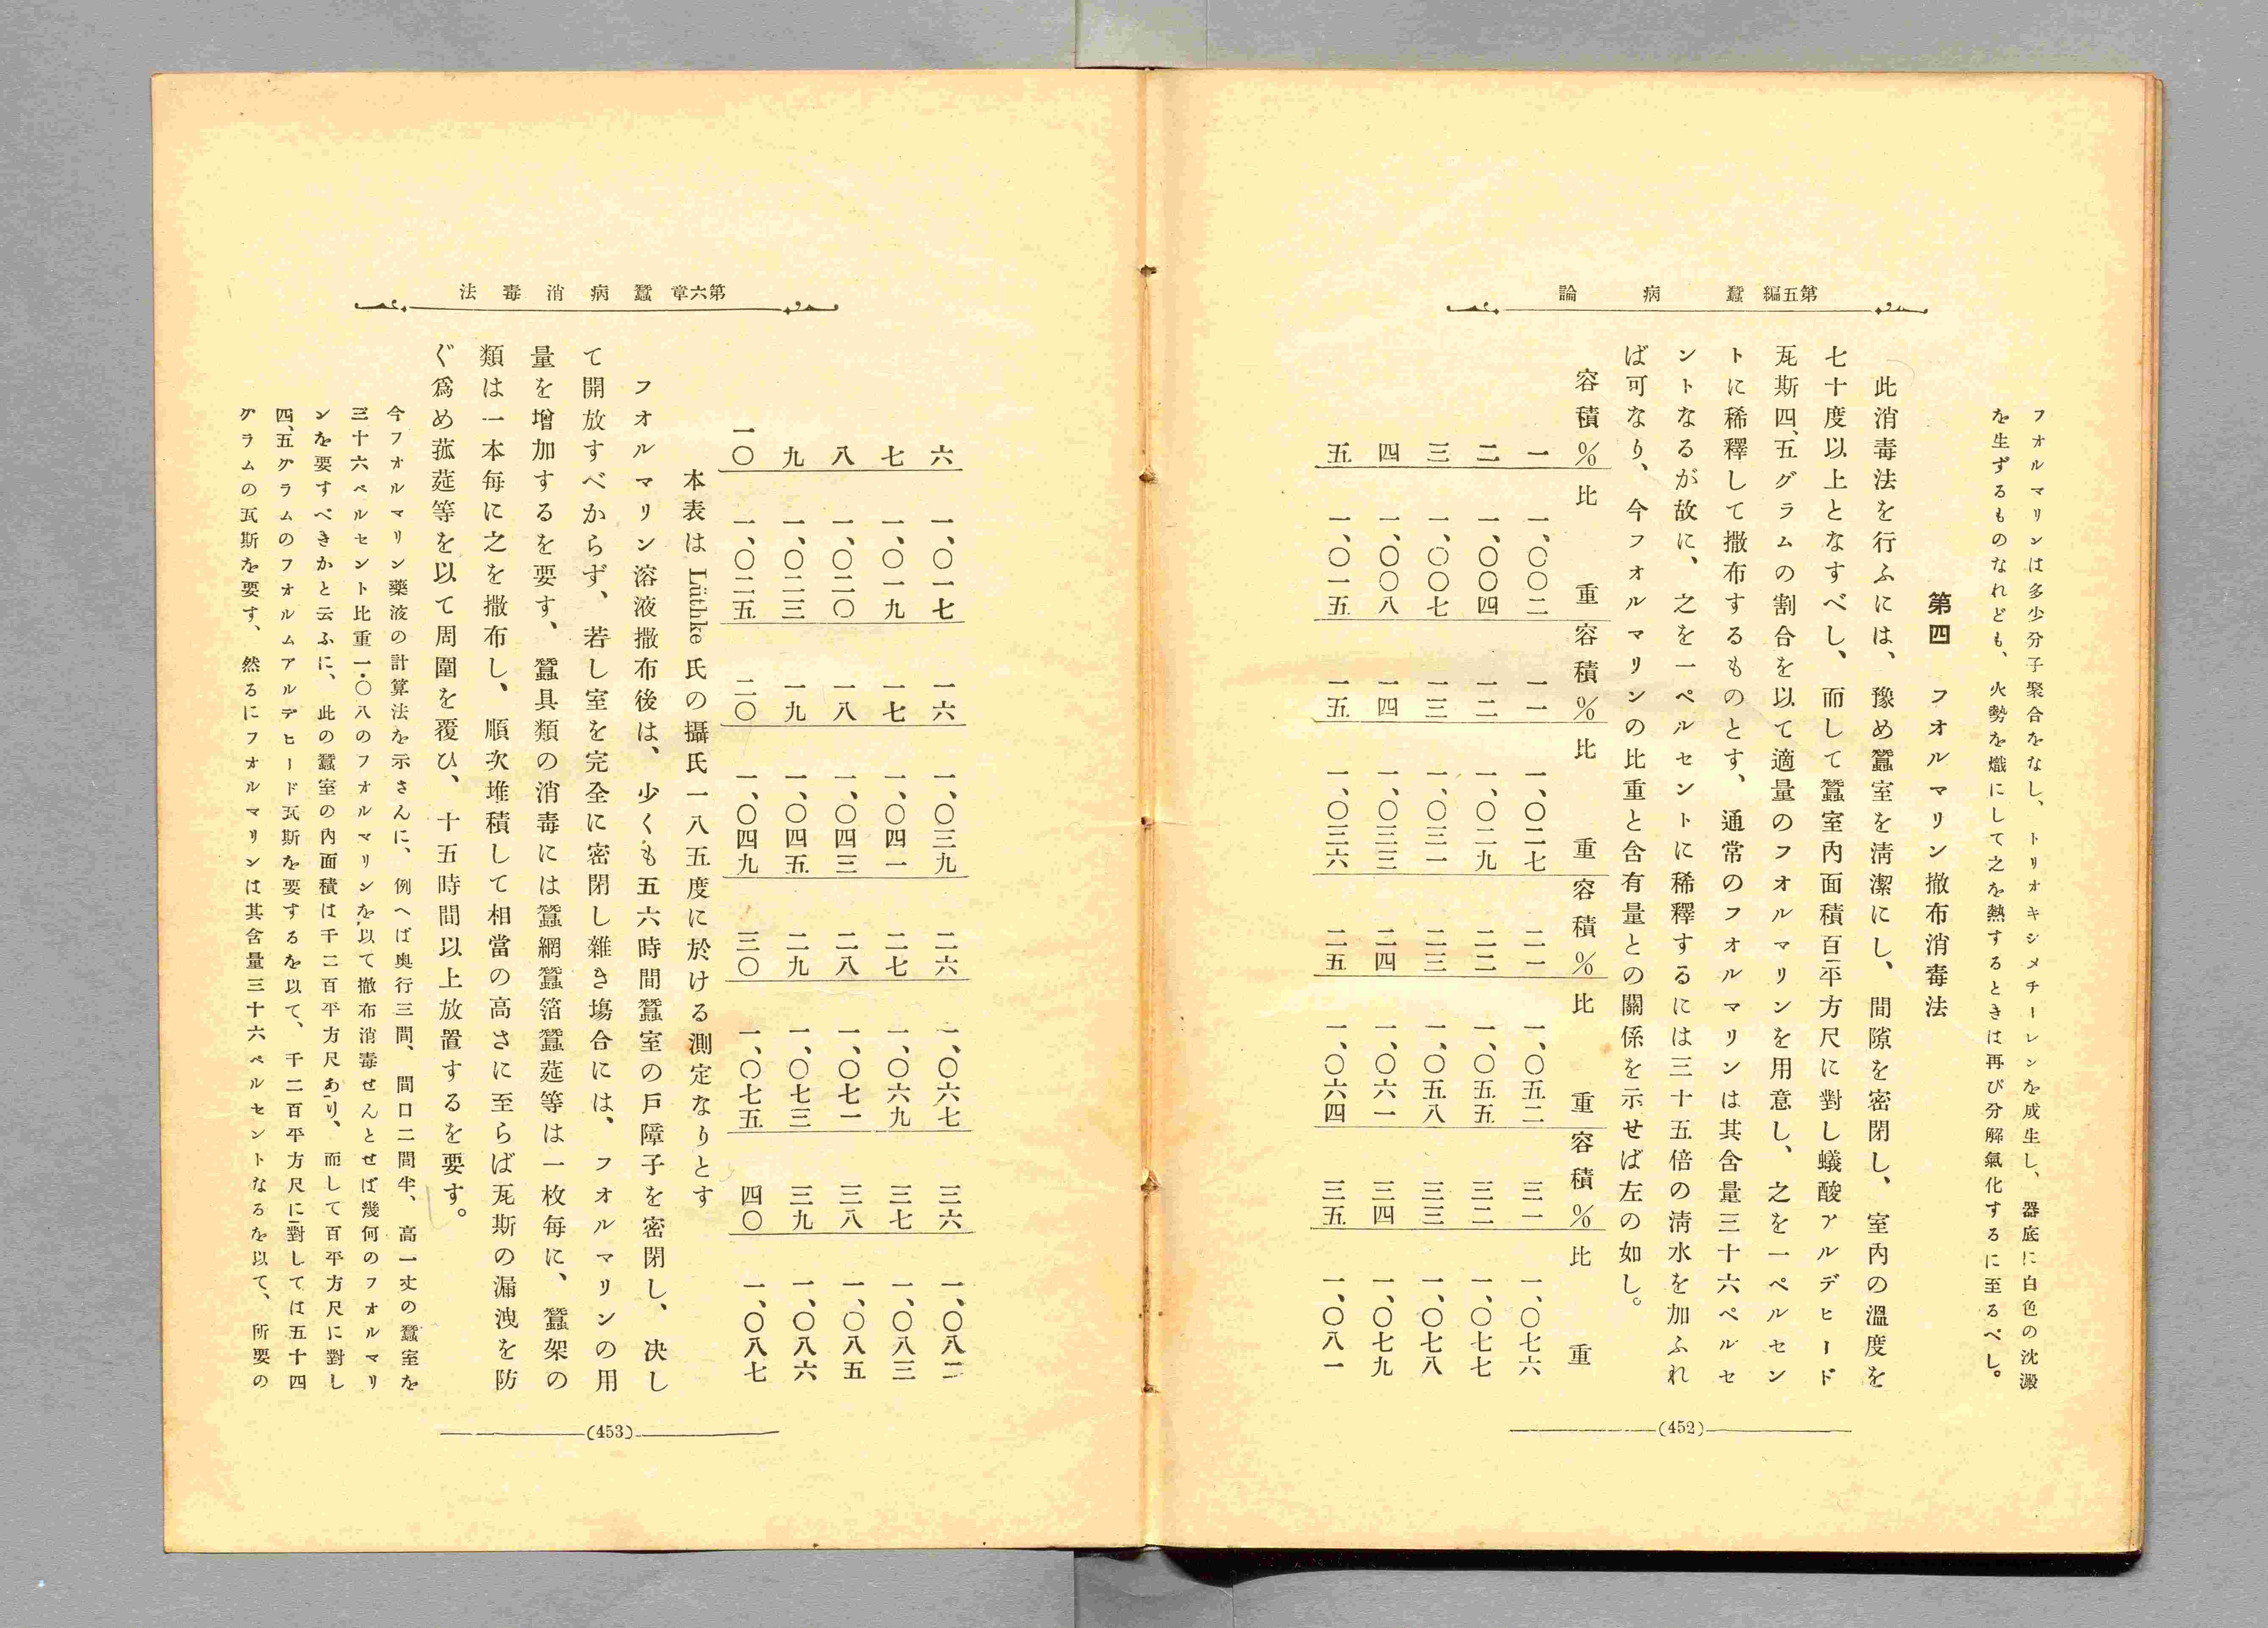 第五編　蠶病論
フオルマリンは多少分子聚合をなし、トリオキシメチーレンを成生し、器底に白色の沈澱
を生ずるものなれども、火勢を熾にして之を熱するときは再び分解氣化するに至るべし。
第四　フオルマリン撒布消毒法
此消毒法を行ふには、豫め蠶室を清潔にし、間隙を密閉し、室內の溫度を
七十度以上となすべし、而して蠶室內面積百平方尺に對し蟻酸アルデヒード
瓦斯四、五グラムの割合を以て適量のフオルマリンを用意し、之を一ペルセン
トに稀釋して撒布するものとす、通常のフオルマリンは其含量三十六ペルセ
ントなるが故に、之を一ペルセントに稀釋するには三十五倍の清水を加ふれ
ば可なり、今フオルマリンの比重と含有量との關係を示せば左の如し。
容積%　比重　容積%　比重　容積%　比重　容積%　比重
一　一、〇〇二　一一　一、〇二七　二一　一、〇五二　三一　一、〇七六
二　一、〇〇四　一二　一、〇二九　二二　一、〇五五　三二　一、〇七七
三　一、〇〇七　一三　一、〇三一　二三　一、〇五八　三三　一、〇七八
四　一、〇〇八　一四　一、〇三三　二四　一、〇六一　三四　一、〇七九
五　一、〇一五　一五　一、〇三六　二五　一、〇六四　三五　一、〇八一
(452)
第六章　蠶病消毒法
六　一、〇一七　一六　一、〇三九　二六　一、〇六七　三六　一、〇八二
七　一、〇一九　一七　一、〇四一　二七　一、〇六九　三七　一、〇八三
八　一、〇二〇　一八　一、〇四三　二八　一、〇七一　三八　一、〇八五
九　一、〇二三　一九　一、〇四五　二九　一、〇七三　三九　一、〇八六
一〇　一、〇二五　二〇　一、〇四九　三〇　一、〇七五　四〇　一、〇八七
本表は Lüthke 氏の攝氏一八五度に於ける測定なりとす
フオルマリン溶液撒布後は、少くも五六時間蠶室の戸障子を密閉し、決し
て開放すべからず、若し室を完全に密閉し雜き塲合には、フオルマリンの用
量を增加するを要す、蠶具類の消毒には蠶網蠶箔蠶莚等は一枚每に、蠶架の
類は一本每に之を撒布し、順次堆積して相當の高さに至らば瓦斯の漏洩を防
ぐ爲め菰莚等を以て周圍を覆ひ、十五時間以上放置するを要す。
今フオルマリン藥液の計算法を示さんに、例へば奥行三間、間口二間半、高一丈の蠶室を
三十六ペルセント比重一・〇八のフオルマリンを以て撒布消毒せんとせば幾何のフオルマリ
ンを要すべきかと云ふに、此の蠶室の內面積は千二百平方尺あり、而して百平方尺に對し
四、五グラムのフオルムアルデヒード瓦斯を要するを以て、千二百平方尺に對しては五十四
グラムの瓦斯を要す、然るにフオルマリンは其含量三十六ペルセントなるを以て、所要の
(453)